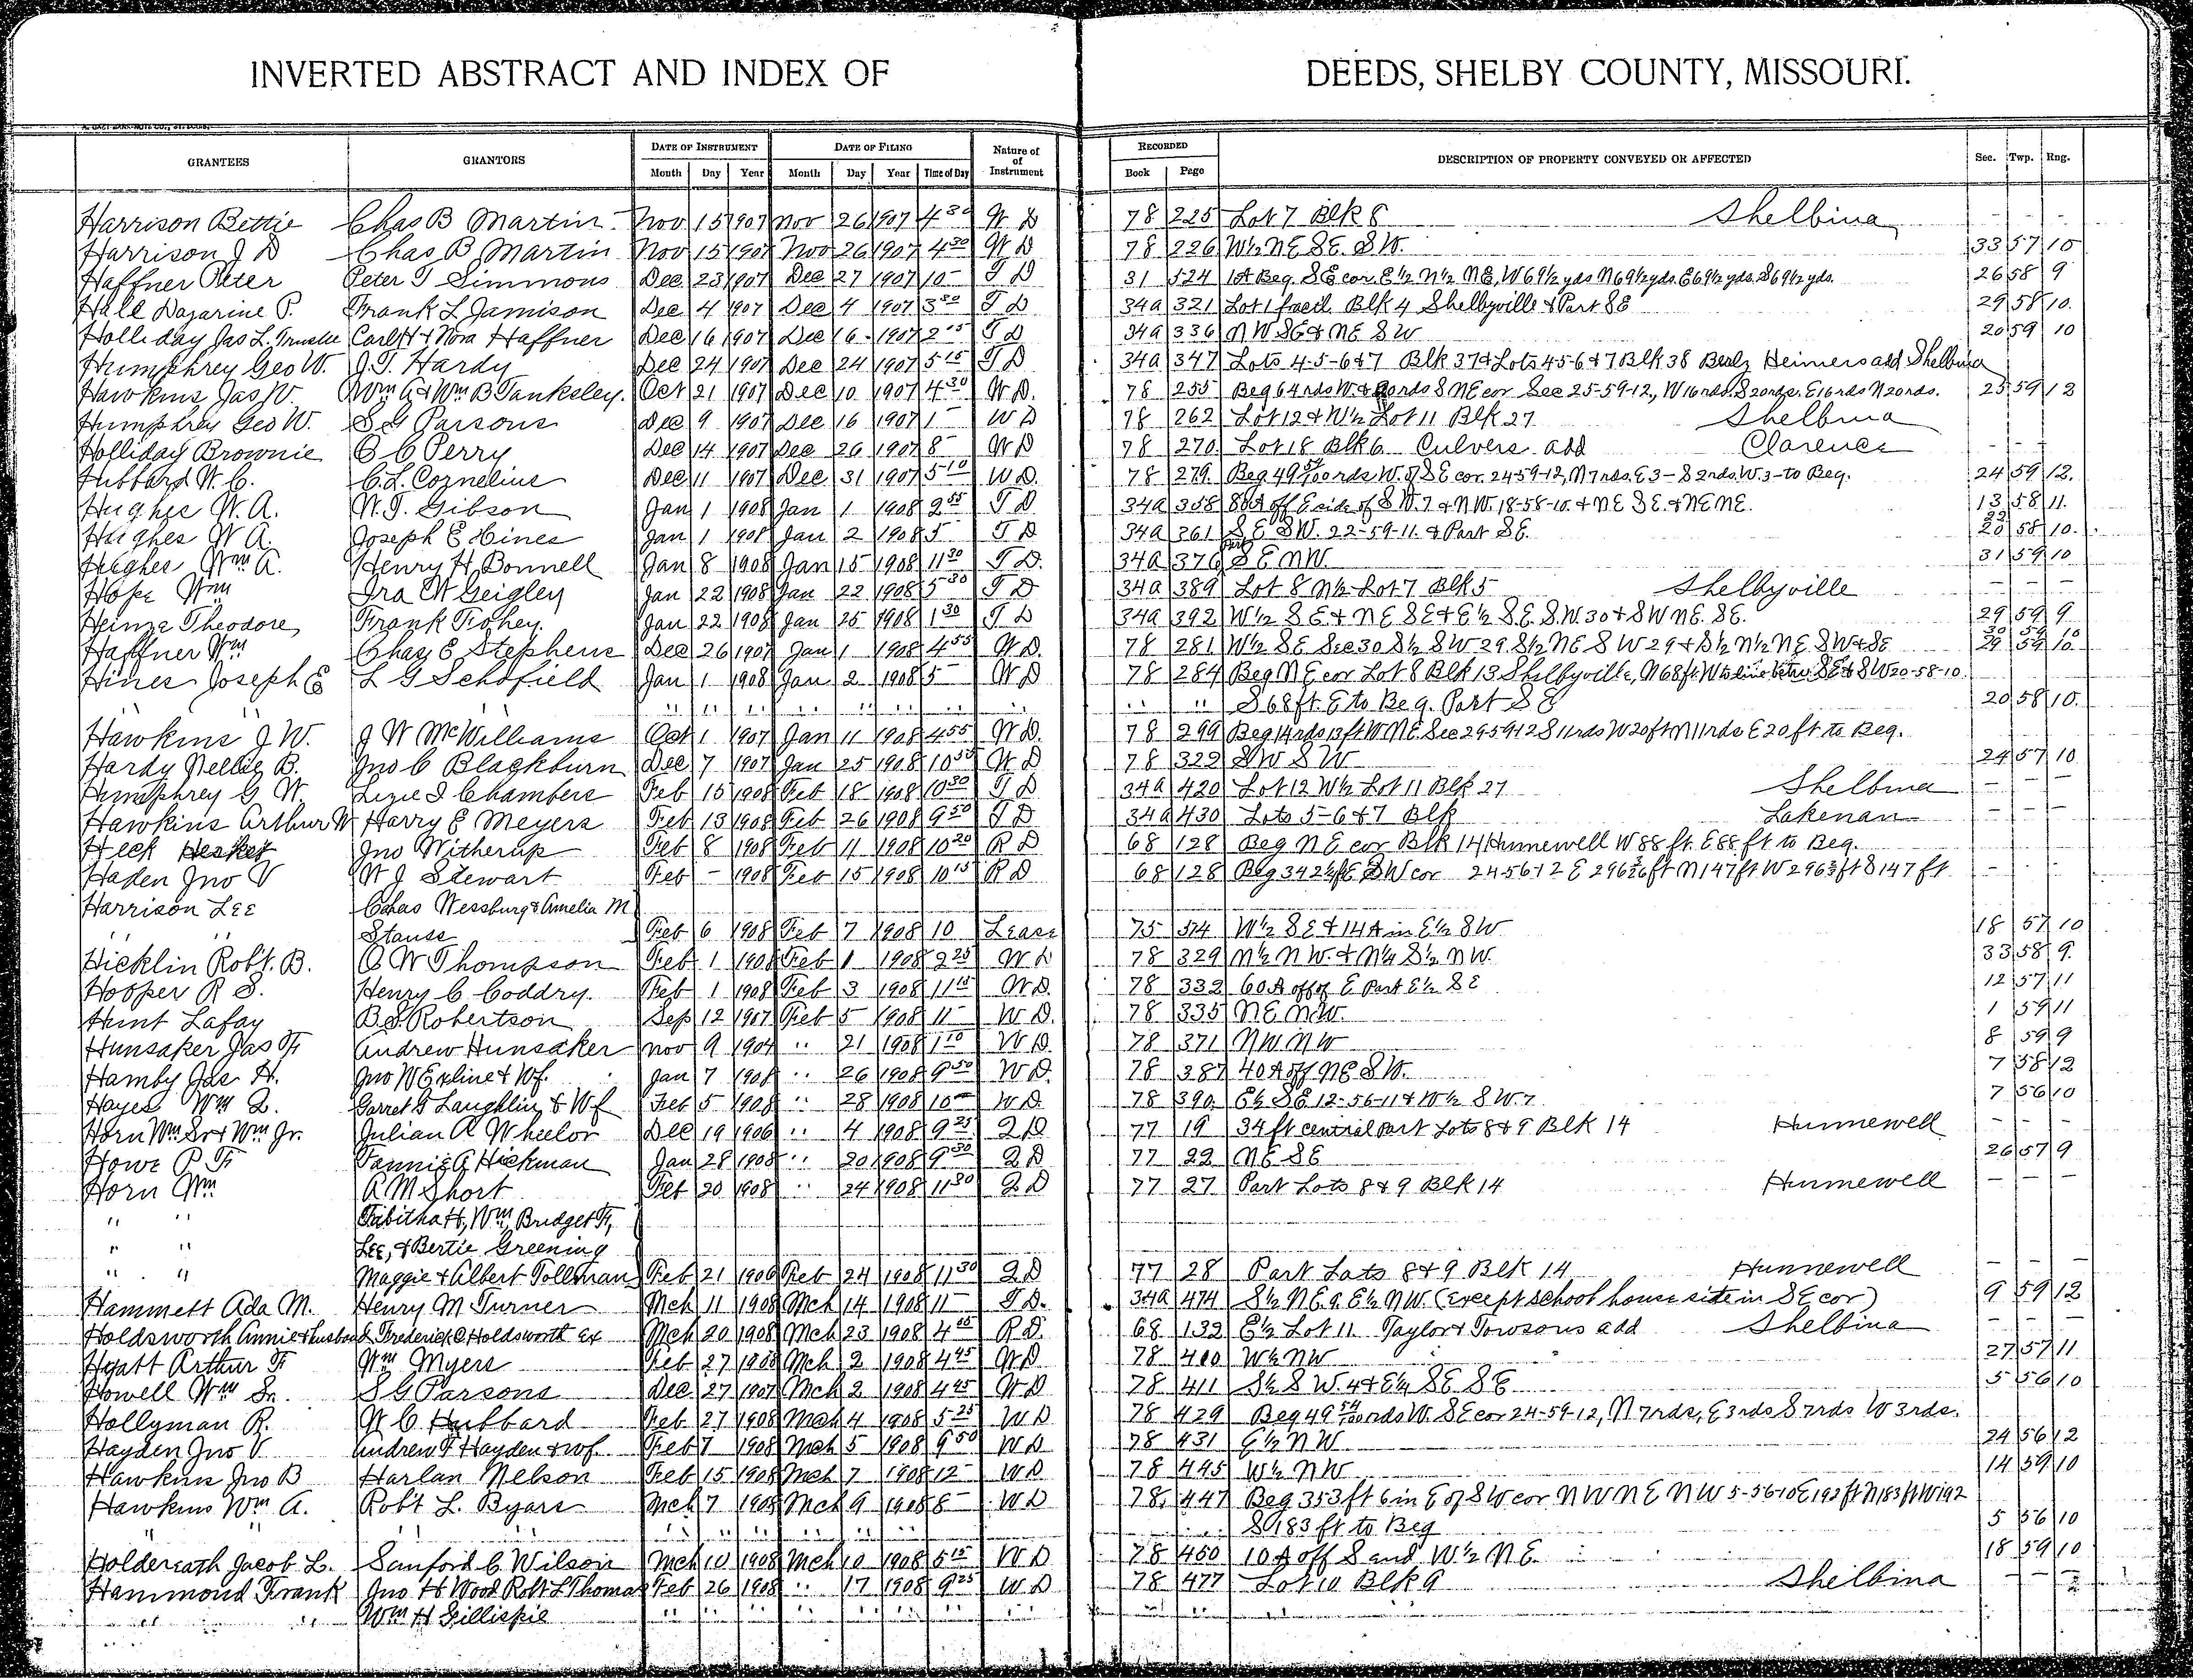 INVERTED ABSTRACT AND INDEX OF DEEDS, SHELBY COUNTY, MISSOURI.
GRANTEES GRANTORS DATE OF INSTRUMENT DATE OF FILING Nature of of Instrument RECORDED DESCRIPTION OF PROPERTY CONVEYED OR AFFECTED Sec. Twp. Rng.
Month Day Year Month Day Year Time of Day Book Page
Harrison Bettie Chas B Martin Nov 15 1907 Nov 26 1907 4 30 W D 78 225 Lot 7 Blk 8 Shelbina - - -
Harrison J D Chas B Martin Nov 15 1907 Nov 26 1907 4 30 W D 78 226 W½ NE SE. SW. 33 57 10
Haffner Peter Peter T Simmons Dec 23 1907 Dec 27 1907 10 - T D 31 524 1A Beg. SE cor. E½ N½ NE, W 69½ yds N 69½ yds. E 69½ yds. S 69½ yds. 26 58 9
Hall Dazarine P. Frank L Jamison Dec 4 1907 Dec 4 1907 3 T D 34a 321 Lot 1 Blk 4 Shelbyville & Part SE 29 58 10.
Holliday Jas L. Trustee Carl H & Nora Haffner Dec 16 1907 Dec 16 1907 2 15 T D 34a 336 NW SE & NE SW 20 59 10
Humphrey Geo W. J. T. Hardy Dec 24 1907 Dec 24 1907 5 15 T D 34a 347 Lots 4-5-6 & 7 Blk 37 & Lots 4-5-6 & 7 Blk 38 Benj Heimers add Shelbina
Hawkins Jas W. Wm A & Wm B Tanksley. Oct 21 1907 Dec 10 1907 4 30 W D. 78 255 Beg 64 rds W. & 20 rds S NE cor Sec 25-59-12, W 16 rds. S 20 rds. E 16 rds N 20 rds. 25 59 12
Humphrey Geo W. S G Parsons Dec 9 1907 Dec 16 1907 1 - W D 78 262 Lot 12 & W½ Lot 11 Blk 27 Shelbina
Holliday Brownie O C Perry Dec 14 1907 Dec 26 1907 8 - W D 78 270 Lot 18 Blk 6 Culvers add Clarence - - -
Hubbard W. C. C. L. Cornelius Dec 11 1907 Dec 31 1907 5-10 W D. 78 279. Beg 49 54/100 rds W. of SE cor. 24-59-12, N 7 rds. E 3 - S 2 rds W. 3 - to Beg. 24 59 12.
Hughes W. A. W. T. Gibson Jan 1 1908 Jan 1 1908 2 55 T D 34a 358 80A off E side of SW. 7 & NW. 18-58-10. & NE SE. & NE NE. 13 58 11.
Hughes W A. Joseph E Hines Jan 1 1908 Jan 2 1908 5 - T D 34a 361 SE SW. 22-59-11. & Part SE. 20 58 10.
Hughes Wm A. Henry H. Bonnell Jan 8 1908 Jan 15 1908 11 30 T D. 34a 376 Part SE NW. 31 59 10
Hope Wm Ira W Geigley Jan 22 1908 Jan 22 1908 5 30 T D 34a 389 Lot 8 N½ Lot 7 Blk 5 Shelbyville - - -
Heinze Theodore Frank Fohey. Jan 22 1908 Jan 25 1908 1 30 T D 34a 392 W½ SE & NE SE & E½ S.E. S.W. 30 & SW NE. SE. 29 59 9
Haffner Wm Chas E Stephens Dec 26 1907 Jan 1 1908 4 55 W D. 78 281 W½ SE Sec 30 S½ SW 29 S½ NE SW 29 & S½ N½ NE SW & SE 30 59 10 29 59 10
Hines Joseph E L G Schofield Jan 1 1908 Jan 2 1908 5 - W D 78 284 Beg NE cor Lot 8 Blk 13 Shelbyville, N 68 ft. W to line betw. SE & SW 20-58-10
" " S 68 ft. E to Beg. Part SE 20 58 10.
Hawkins J W. J W McWilliams Oct 1 1907 Jan 11 1908 4 55 W D. 78 299 Beg 14 rds 13 ft W NE. Sec 29-59-12 S 11 rds W 20 ft N 11 rds E 20 ft to Beg.
Hardy Nellie B. Jno C Blackburn Dec 7 1907 Jan 25 1908 10 W D 78 322 SW SW 24 57 10
Humphrey G W. Lizzie I Chambers Feb 15 1908 Feb 18 1908 10 30 T D 34a 420 Lot 12 W½ Lot 11 Blk 27 Shelbina - - -
Hawkins Arthur W Harry E Meyers Feb 13 1908 Feb 26 1908 9 50 T D 34a 430 Lots 5-6 & 7 Blk Lakenan - - -
Heck Jno Witherup Feb 8 1908 Feb 11 1908 10 20 R D 68 128 Beg NE cor Blk 14 Hunnewell W 88 ft. E 88 ft to Beg.
Haden Jno V W J Stewart Feb - 1908 Feb 15 1908 10 15 R D 68 128 Beg 342 ft E SW cor 24-56-12 E 296 ft N 147 ft W 296 ft S 147 ft - - -
Harrison Lee Chas Wessburg & Amelia M
" " Stauss Feb 6 1908 Feb 7 1908 10 Lease 75 574 W½ SE & 14A in E½ SW 18 57 10
Hicklin Robt. B. O W Thompson Feb 1 1908 Feb 1 1908 2 25 W D 78 329 N½ NW. & N½ S½ NW. 33 58 9.
Hooper R S. Henry C Coddry. Feb 1 1908 Feb 3 1908 11 15 W D. 78 332 60A off of E Part E½ SE 12 57 11
Hunt Lafay B. S. Robertson Sep 12 1907 Feb 5 1908 11 - W D. 78 335 NE NW. 1 59 11
Hunsaker Jas F. Andrew Hunsaker Nov 9 1904 " 21 1908 1 10 W D. 78 371 NW NW 8 59 9
Hamby Jas H. Jno W Exline & Wf. Jan 7 1908 " 26 1908 9 50 W D. 78 387 40A off NE SW. 7 58 12
Hayes Wm Q. Garret G Laughlin & Wf Feb 5 1908 " 28 1908 10 - W D. 78 390 E½ SE 12-56-11 & W½ SW 7. 7 56 10
Horn Wm Sr & Wm Jr. Julian A Wheelor Dec 19 1906 " 4 1908 9 25 Q D 77 19 34 ft central part Lots 8 & 9 Blk 14 Hunnewell - - -
Howe P F Fannie A Hickman Jan 28 1908 " 20 1908 9 30 Q D 77 22 NE SE 26 57 9
Horn Wm A M Short Feb 20 1908 " 24 1908 11 30 Q D 77 27 Part Lots 8 & 9 Blk 14 Hunnewell - - -
" " Tabitha H, Wm, Bridget F,
" " Lee, & Bertie Greening
" " Maggie & Albert Tollman Feb 21 1908 Feb 24 1908 11 30 Q D 77 28 Part Lots 8 & 9 Blk 14 Hunnewell - - -
Hammett Ada M. Henry M Turner Mch 11 1908 Mch 14 1908 11 - T D. 34a 474 S½ NE 9. E½ NW. (Except school house site in SE cor) 9 59 12
Holdsworth Annie & husband Frederick C Holdsworth Ex Mch 20 1908 Mch 23 1908 4 05 R D. 68 132 E½ Lot 11. Taylor & Towsons add Shelbina - - -
Hyatt Arthur F Wm Myers Feb 27 1908 Mch 2 1908 4 45 W D 78 410 W½ NW 27 57 11
Howell Wm Sr. S G Parsons Dec 27 1907 Mch 2 1908 4 45 W D 78 411 S½ SW. 4 & E½ SE SE 5 56 10
Hollyman R. W C Hubbard Feb 27 1908 Mch 4 1908 5 25 W D 78 429 Beg 49 54/100 rds W. SE cor 24-59-12, N 7 rds, E 3 rds S 7 rds W 3 rds.
Hayden Jno V. Andrew T Hayden & wf Feb 7 1908 Mch 5 1908 9 50 W D 78 431 E½ NW 24 56 12
Hawkins Jno B Harlan Nelson Feb 15 1908 Mch 7 1908 12 - W D 78 445 W½ NW 14 59 10
Hawkins Wm A. Robt L. Byars Mch 7 1908 Mch 9 1908 8 - W D 78 447 Beg 353 ft 6 in E of SW cor NW NE NW 5-56-10 E 192 ft N 183 ft W 192
" " S 183 ft to Beg 5 56 10
Holdereath Jacob L. Sanford C Wilson Mch 10 1908 Mch 10 1908 5 15 W D 78 450 10A off S end W½ NE. 18 59 10
Hammond Frank Jno H Wood Robt L Thomas Feb 26 1908 " 17 1908 9 25 W D 78 477 Lot 10 Blk 9 Shelbina - - -
" " Wm H Gillispie